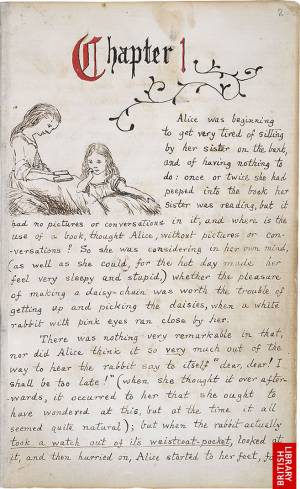 2
Chapter 1
Alice was beginning
to get very tired of sitting
by her sister on the bank,
and of having nothing to
do: once or twice she had
peeped into the book her
sister was reading, but it
had no pictures or conversations in it, and where is the
use of a book, thought Alice, without pictures or con-
versations? So she was considering in her own mind,
(as well as she could, for the hot day made her
feel very sleepy and stupid,) whether the pleasure
of making a daisy-chain was worth the trouble of
getting up and picking the daisies, when a white
rabbit with pink eyes ran close by her.
There was nothing very remarkable in that,
nor did Alice think it so very much out of the
way to hear the rabbit say to itself "dear, dear! I
shall be too late!" (when she thought it over after-
wards, it occurred to her that she ought to
have wondered at this, but at the time it all
seemed quite natural); but when the rabbit actually
took a watch out of its waistcoat-pocket, looked at
it, and then hurried on, Alice started to her feet, for
BRITISH
LIBRARY